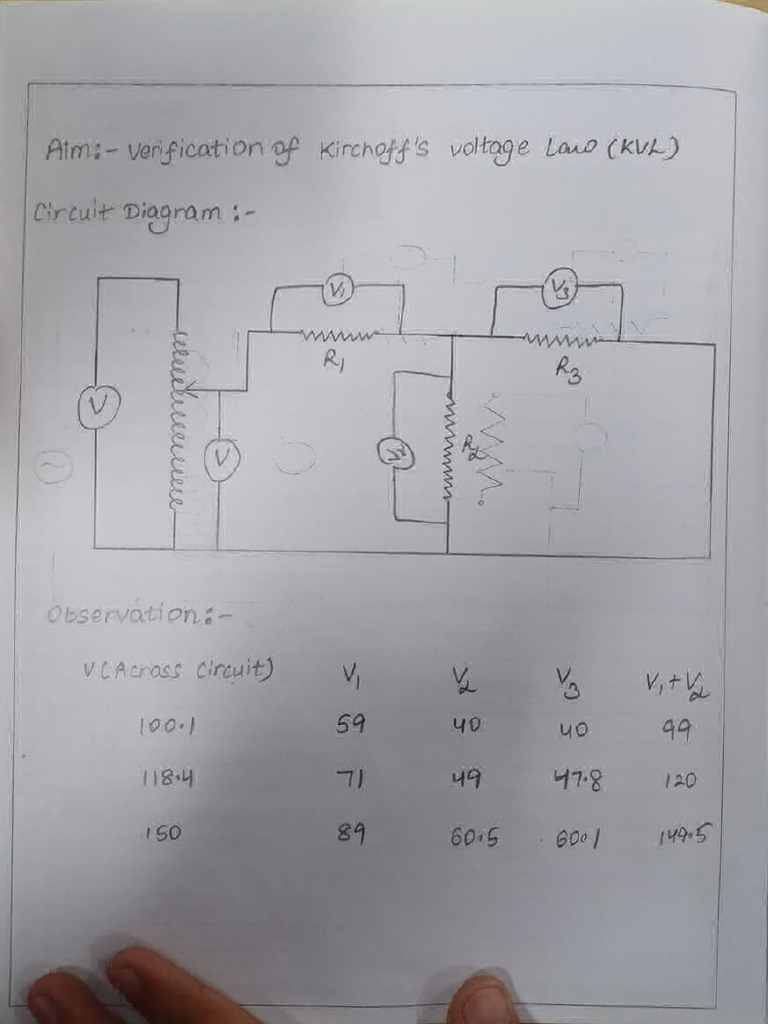 Aim:- Verification of Kirchoff's voltage Law (KVL)
Circuit Diagram :-
V1
V3
R1
R3
V
V
V2
R2
Observation:-
V(Across Circuit) V1 V2 V3 V1+V2
100.1 59 40 40 99
118.4 71 49 47.8 120
150 89 60.5 60.1 149.5